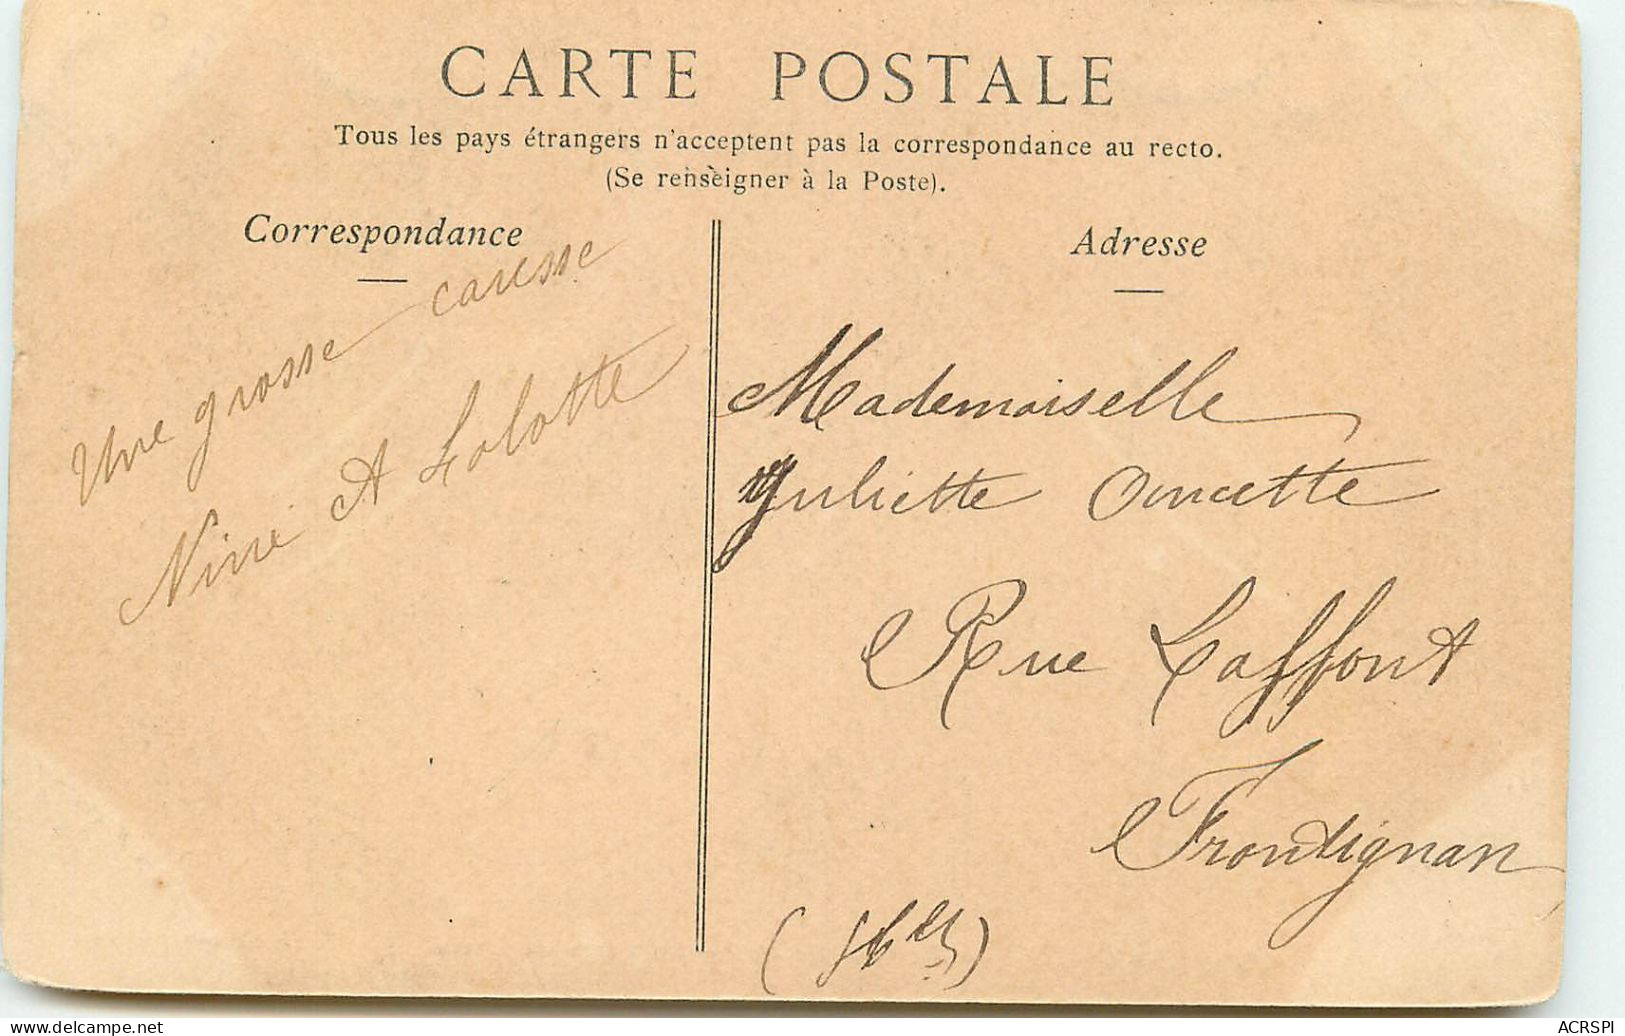 CARTE POSTALE
Tous les pays étrangers n'acceptent pas la correspondance au recto.
(Se renseigner à la Poste).
Correspondance
Une grosse caresse
Nine et Lolotte
Adresse
Mademoiselle
Juliette
Rue Laffont
Frontignan
ACRSPI